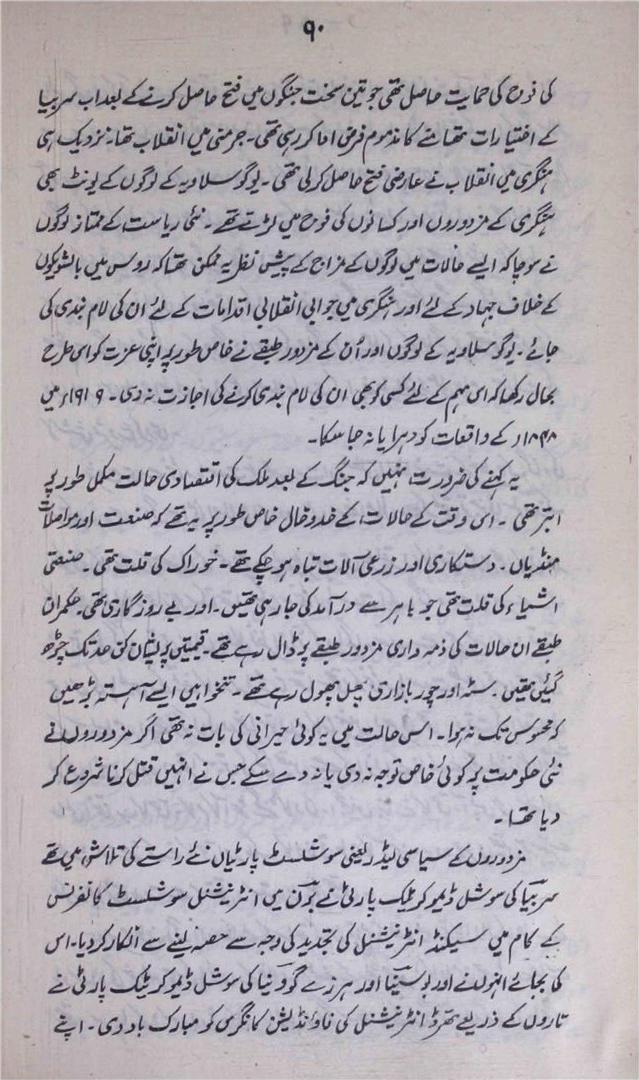 ۹۰
کی فوج کی حمایت حاصل تھی جو تین سخت جنگوں میں فتح حاصل کرنے کے بعد اب سربیا
کے اختیارات تھامنے کا مذموم فرض ادا کر رہی تھی۔ جرمنی میں انقلاب تھا۔ نزدیک ہی
ہنگری میں انقلاب نے عارضی فتح حاصل کر لی تھی۔ یوگوسلاویہ کے لوگوں کے یونٹ بھی
ہنگری کے مزدوروں اور کسانوں کی فوج میں لڑتے تھے۔ نئی ریاست کے ممتاز لوگوں
نے سوچا کہ ایسے حالات میں لوگوں کے مزاج کے پیش نظر یہ ممکن تھا کہ روس میں بالشویکوں
کے خلاف جہاد کے لئے اور ہنگری میں جوابی انقلابی اقدامات کے لئے ان کی لام بندی کی
جائے۔ یوگوسلاویہ کے لوگوں اور اُن کے مزدور طبقے نے خاص طور پر اپنی عزت کو اس طرح
بحال رکھا کہ اس مہم کے لئے کسی کو بھی ان کی لام بندی کرنے کی اجازت نہ دی۔ ۱۹۱۹ء میں
۱۸۴۸ء کے واقعات کو دہرایا نہ جا سکا۔
یہ کہنے کی ضرورت نہیں کہ جنگ کے بعد ملک کی اقتصادی حالت مکمل طور پر
ابتر تھی۔ اس وقت کے حالات کے خدوخال خاص طور پر یہ تھے کہ صنعت اور مواصلات
منڈیاں۔ دستکاری اور زرعی آلات تباہ ہو چکے تھے۔ خوراک کی قلت تھی۔ صنعتی
اشیاء کی قلت تھی جو باہر سے درآمد کی جا رہی تھیں۔ اور بے روزگاری تھی۔ حکمران
طبقے ان حالات کی ذمہ داری مزدور طبقے پر ڈال رہے تھے۔ قیمتیں پریشان کن حد تک چڑھ
گئی تھیں۔ سٹہ اور چور بازاری پھل پھول رہے تھے۔ تنخواہیں ایسے آہستہ بڑھیں
کہ محسوس تک نہ ہوا۔ اس حالت میں یہ کوئی حیرانی کی بات نہ تھی اگر مزدوروں نے
نئی حکومت پر کوئی خاص توجہ نہ دی یا نہ دے سکے جس نے انہیں قتل کرنا شروع کر
دیا تھا۔
مزدوروں کے سیاسی لیڈر یعنی سوشلسٹ پارٹیاں نئے راستے کی تلاش میں تھے
سربیا کی سوشل ڈیموکریٹک پارٹی نے بون میں انٹرنیشنل سوشلسٹ کانفرنس
کے کام میں سیکنڈ انٹرنیشنل کی تجدید کی وجہ سے حصہ لینے سے انکار کر دیا۔ اس
کی بجائے انہوں نے اور بوسینا اور ہرزے گووینا کی سوشل ڈیموکریٹک پارٹی نے
تاروں کے ذریعے تھرڈ انٹرنیشنل کی فاونڈیشن کانگرس کو مبارک باد دی۔ اپنے